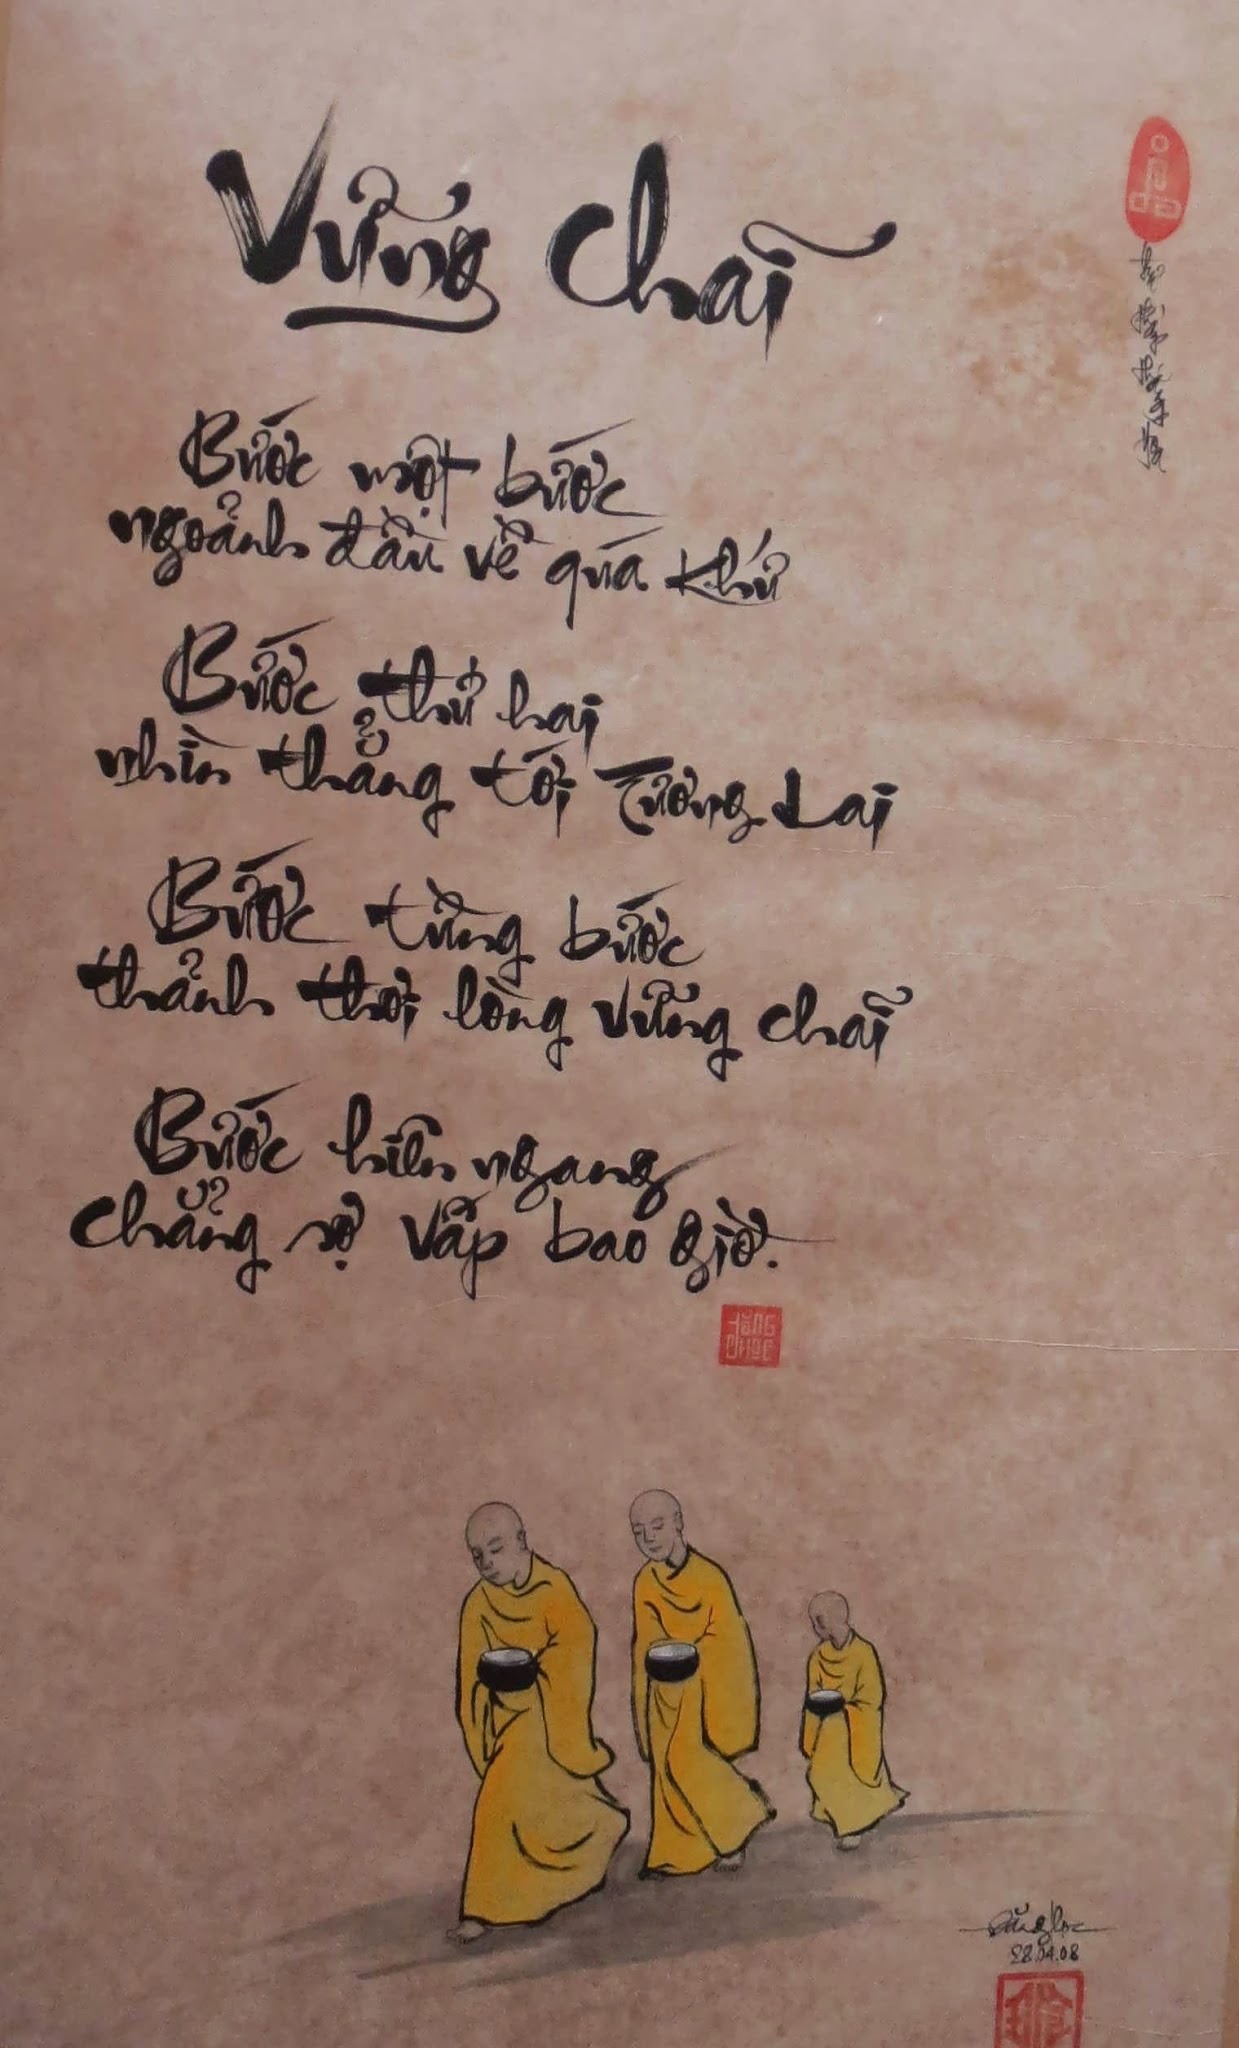 Vững Chãi
Bước một bước
ngoảnh đầu về quá khứ
Bước thứ hai
nhìn thẳng tới Tương Lai
Bước từng bước
thảnh thơi lòng vững chãi
Bước hiên ngang
chẳng sợ vấp bao giờ.
ĐĂNG HỌC
28.04.08